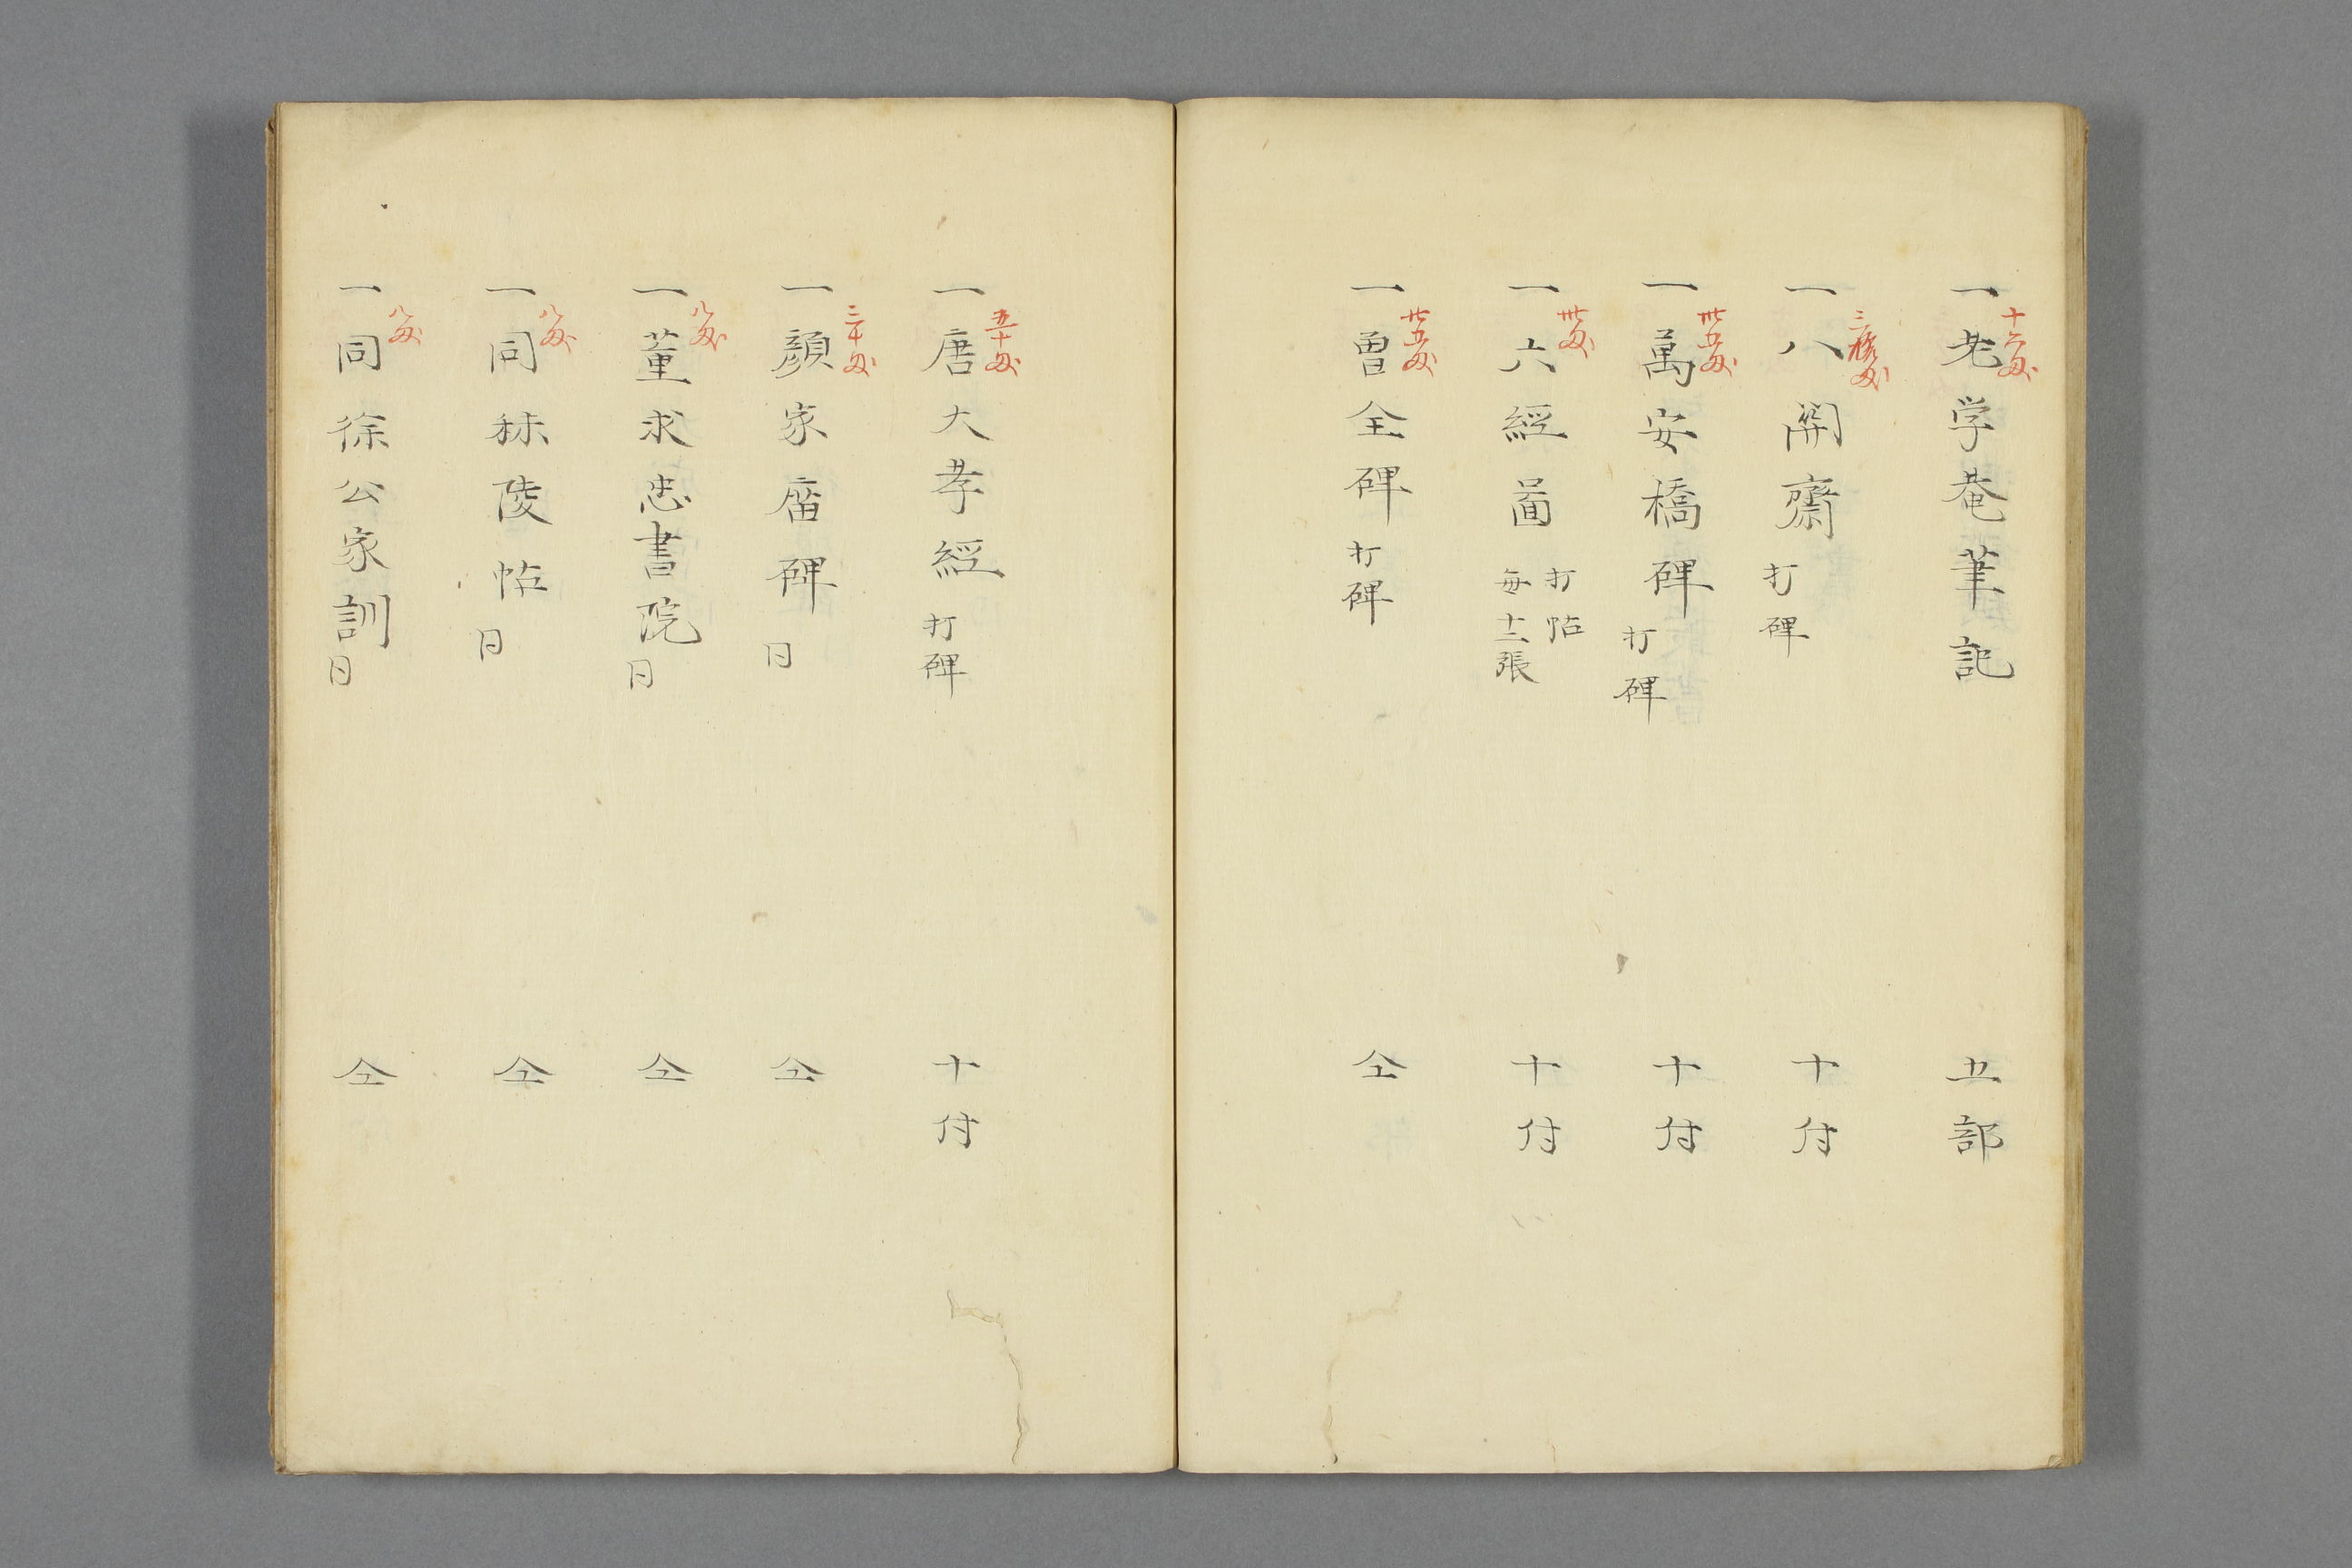 一老学菴筆記 五部
十六匁
一八関齋 打碑 十付
一萬安橋碑 打碑 十付
卅五匁
一六經啚 打帖 每十二張 十付
卅匁
一曽全碑 打碑 仝
廿五匁
一唐大孝經 打碑 十付
五十匁
一顔家庿碑 日 仝
三十匁
一董求忠書院 日 仝
八匁
一同秣陵帖 日 仝
八匁
一同徐公家訓 日 仝
八匁